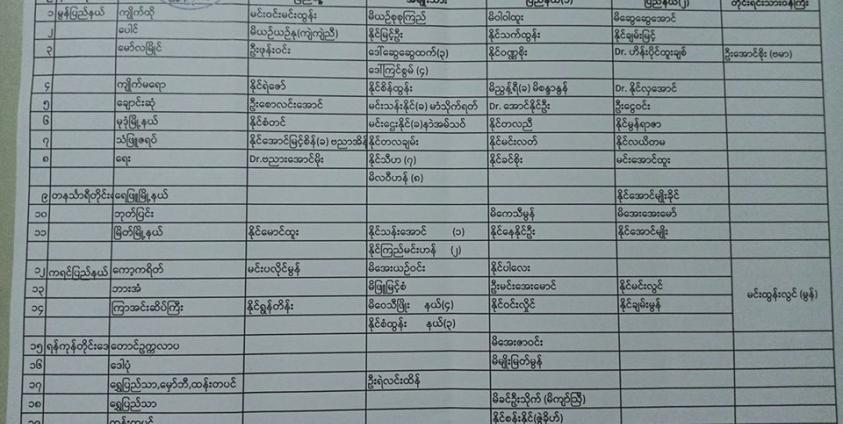 ၁ မွန်ပြည်နယ် ကျိုက်ထို မင်းဝင်းမင်းထွန်း မိယဉ်စုစုကြည် မိဝါဝါထူး မိဆွေဆွေအောင်
၂ ပေါင် မိယဉ်ယဉ်နု(ကျဲကျဲညီ) နိုင်မြင့်ဦး နိုင်သက်ထွန်း နိုင်ချမ်းမြင့်
၃ မော်လမြိုင် ဦးဖုန်းဝင်း ဒေါ်ဆွေဆွေထက်(၃) နိုင်ဝဏ္ဏစိုး Dr. ဟိန်းပိုင်ထူးချစ် ဦးအောင်စိုး (ဗမာ)
ဒေါ်ကြင်စွမ် (၄)
၄ ကျိုက်မရော နိုင်ရဲဇော် နိုင်စိန်ထွန်း Dr. နိုင်လှအောင်
၅ ချောင်းဆုံ ဦးစောလင်းအောင် Dr. အောင်နိုင်ဦး ဦးငွေဝင်း
၆ မုဒုံမြို့နယ် နိုင်စံတင် နိုင်တလညီ နိုင်မွန်ရာဇာ
၇ သံဖြူဇရပ် နိုင်တလချမ်း နိုင်မင်းလတ် နိုင်လယီတမ
၈ ရေး Dr.ဗညားအောင်မိုး နိုင်သီဟ (၇) နိုင်ခင်စိုး မင်းအောင်ထူး
မိလဝီဟန် (၈)
၉ တနင်္သာရီတိုင်း ရေဖြူမြို့နယ် နိုင်အောင်မျိုးခိုင်
၁၀ ဘုတ်ပြင်း မိကေသီမွန် မိအေးအေးမော်
၁၁ မြိတ်မြို့နယ် နိုင်မောင်ထူး နိုင်သန်းအောင် (၁) နိုင်နေနိုင်ဦး နိုင်အောင်မျိုး
နိုင်ကြည်မင်းဟန် (၂)
၁၂ ကရင်ပြည်နယ် ကော့ကရိတ် မင်းပလိုင်မွန် မိအေးယဉ်ဝင်း နိုင်ပါလေး
၁၃ ဘားအံ မိဖြူမြင့်စံ ဦးမင်းအေးမောင် နိုင်မင်းလွင် မင်းထွန်းလွင် (မွန်)
၁၄ ကြာအင်းဆိပ်ကြီး နိုင်ရွန်တိန်း မိဝေသီဖြိုး နယ်(၄) နိုင်ဝင်းလှိုင် နိုင်ချမ်းမွန်
နိုင်စံထွန်း နယ်(၃)
၁၅ ရန်ကုန်တိုင်းဒေ တောင်ဥက္ကလာပ မိအေးဇာဝင်း
၁၆ ဒေါပုံ မိမျိုးမြတ်မွန်
၁၇ ရွှေပြည်သာ,မှော်ဘီ,ထန်းတပင် ဦးရဲလင်းထိန်
၁၈ ရွှေပြည်သာ မိခင်ဦးသိုက်
၁၉ ထန်းတပင်